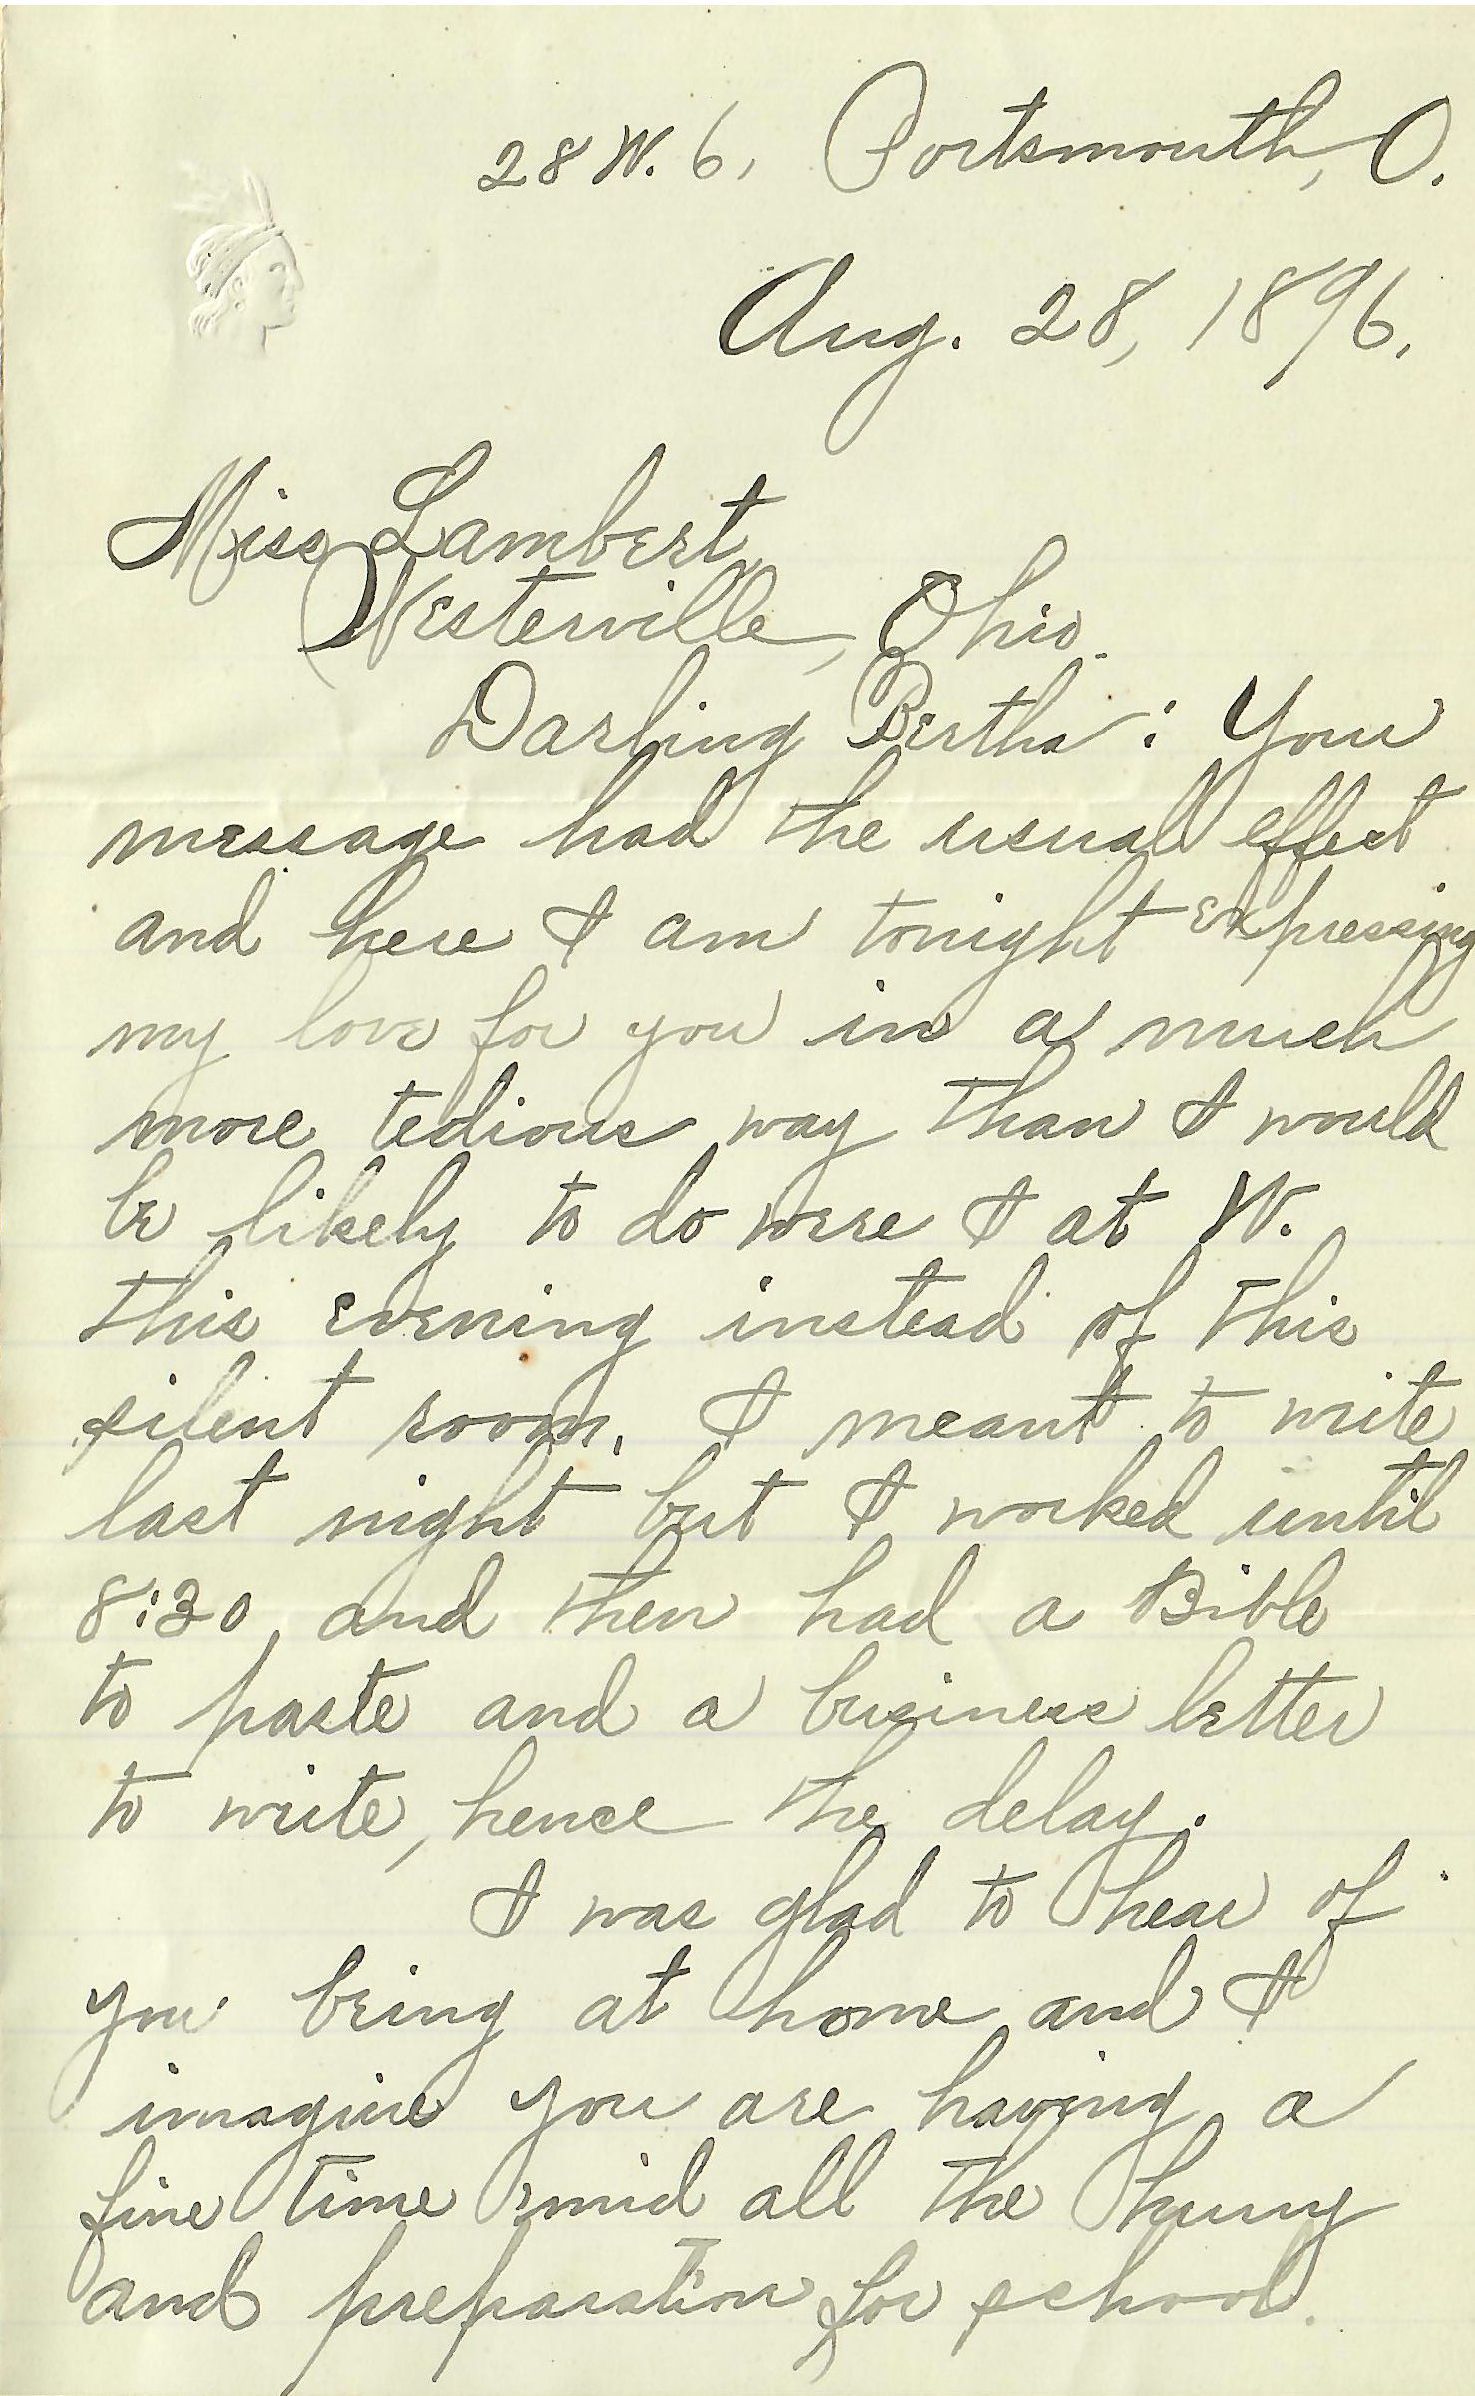 28 W. 6, Portsmouth, O.
Aug. 28, 1896.
Miss Lambert,
Westerville, Ohio.
Darling Bertha: Your
message had the usual effect
and here I am tonight expressing
my love for you in a much
more tedious way than I would
be likely to do were I at W.
this evening instead of this
silent room. I meant to write
last night but I worked until
8:30 and then had a Bible
to paste and a business letter
to write, hence the delay.
I was glad to hear of
you being at home and I
imagine you are having a
fine time amid all the hurry
and preparation for school.